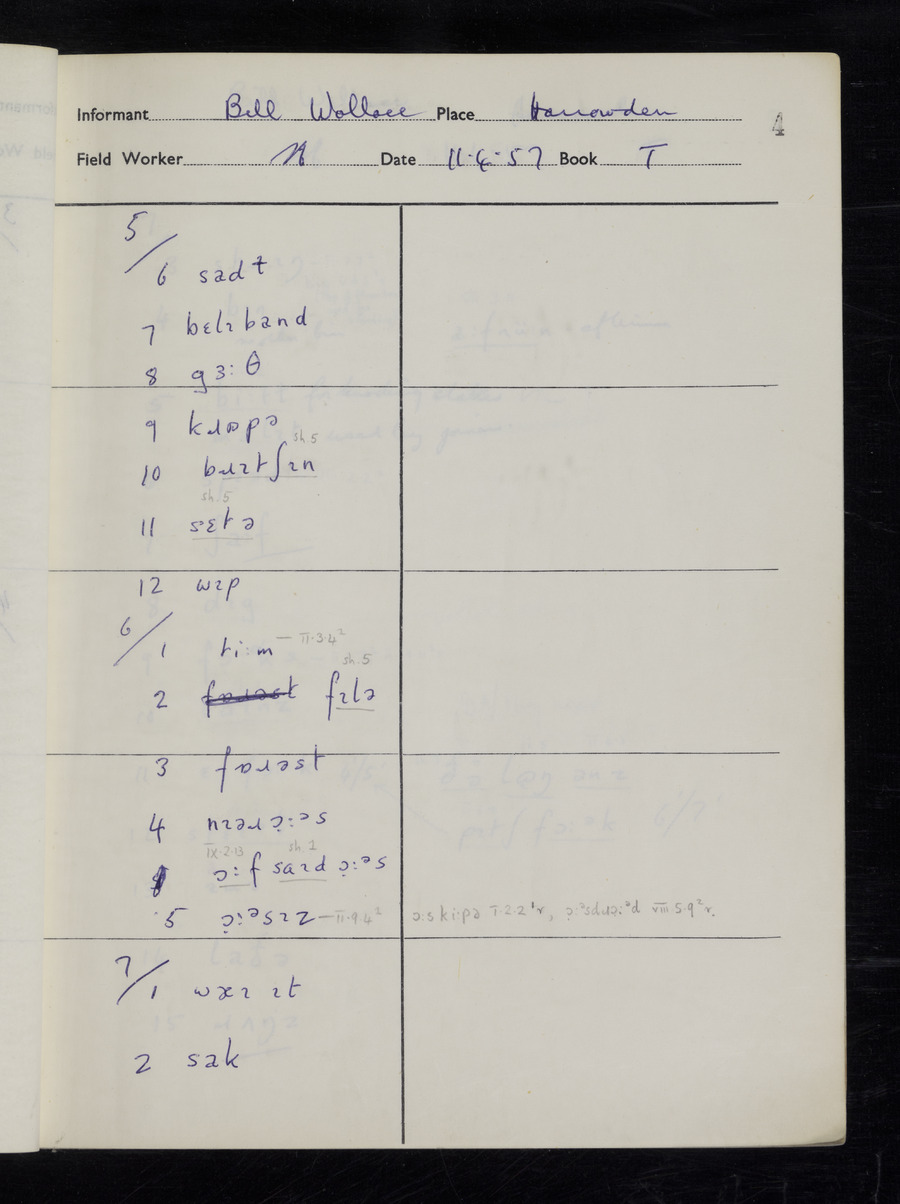 Informant Bill Wallace Place Harrowden 4
Field Worker N Date 11·4·57 Book I
5/
6 sadɫ
7 bɛlɪband
8 gɜ:θ
9 kɹɒpə
10 bɹɪtʃɪn sh.5
11 sɛtə sh.5
12 wɪp
6/1 ti:m — II·3·4²
2 fɪlə sh.5
3 fɒɹəst
4 nɪəɹ ɔ:əs
ɔ:f saɪd ɔ:əs IX·2·13 sh 1
5 ɔ:əsɪz — II·9·4² ɔ:s ki:pə I·2·2¹r, ɔ:ᵊsdɹɔ:ᵊd VIII 5·9²r.
7/1 wæɪ ɪt
2 sak